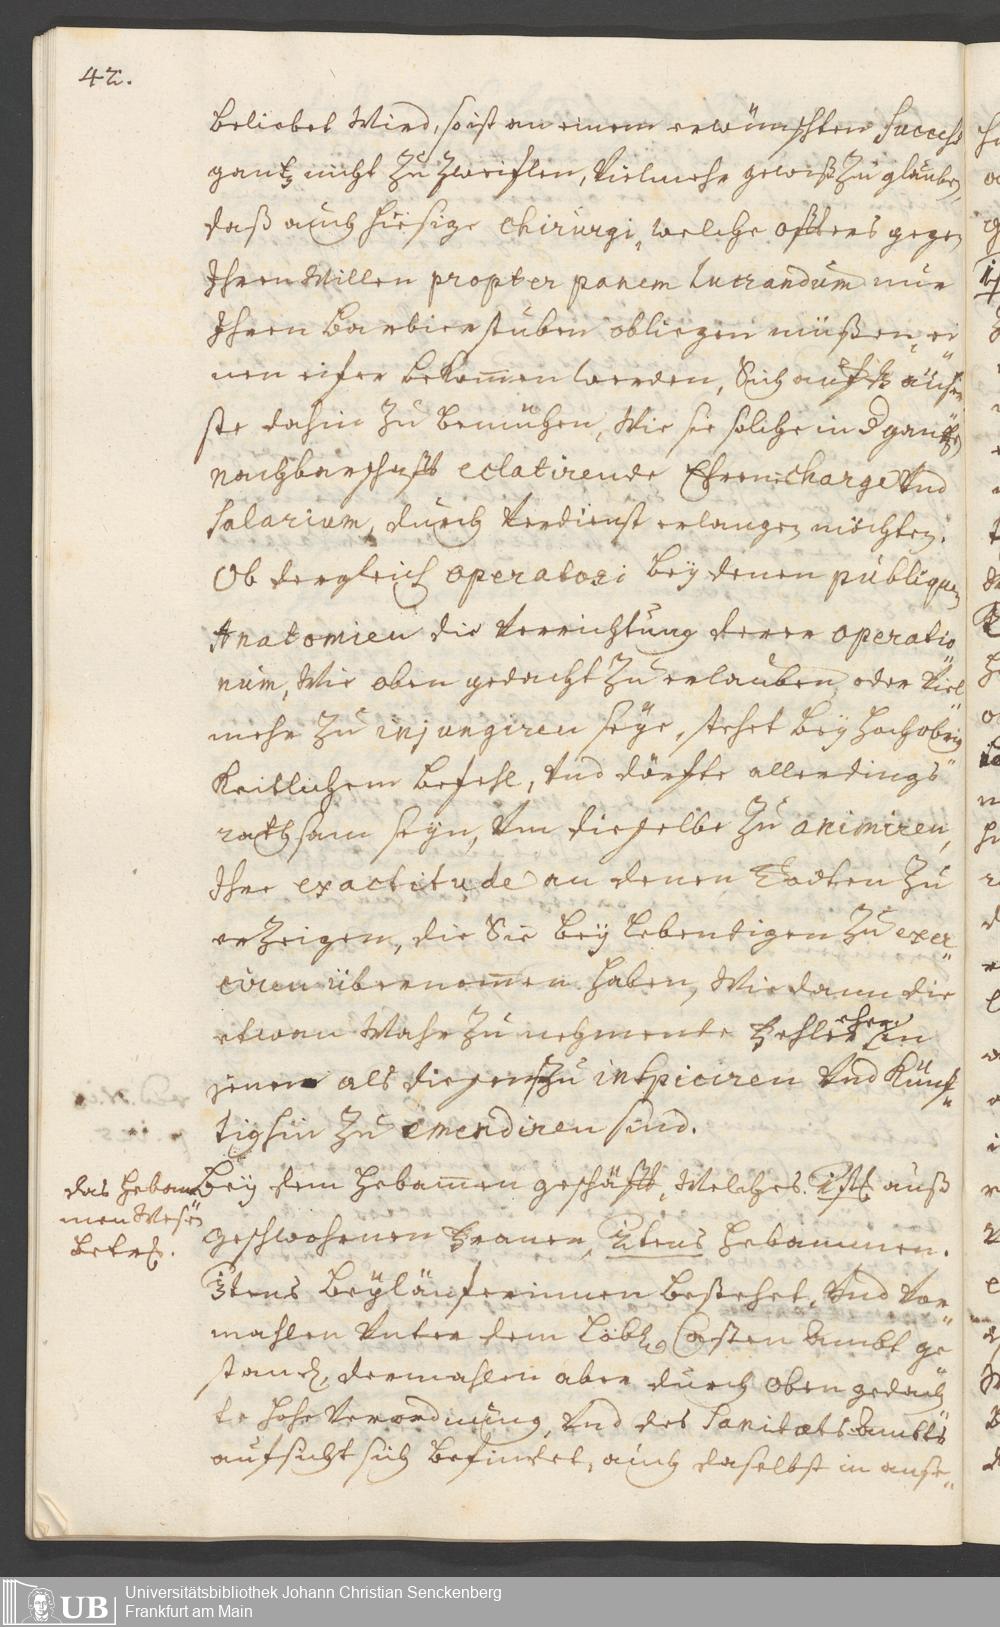 42.
beliebet Wird, so ist an einem erwünschten Success
gantz nicht Zu Zweiflen, Vielmehr gewiß Zu glauben,
daß auch hiesige Chirurgi, welche öffters gegen
Ihren Willen propter panem lucrandum nur
Ihren Barbierstuben obliegen müßen, ei„
nen eifer bekommen werden, Sich auffs äuser
ste dahin Zu bemühen, Wie sie solche in d gantzen
nachbarschafft eclatirende Ehren=charge Und
Salarium, durch Verdienst erlangen möchten.
Ob dergleich operatori bey denen publiquen
Anatomien die Verrichtung derer operatio„
num, Wie oben gedacht Zu erlauben oder Viel„
mehr Zu injungiren seye, stehet bey hochobrig„
keitlichem befehl, Und dörfte allerdings
rathsam seyn, Um dieselbe Zu animiren,
Ihre exactitude an denen Todten Zu
erzeigen, die Sie bey Lebentigen Zu exer„
ciren übernommen haben, Wie dann die
etwan Wahr Zu nehmente Fehler eher in
jenen als diesen Zu inspiciren Und Künf„
tighin Zu emendiren sind.
das Hebam
men Wesen
betrf.
Bey dem Hebamen geschäfft, Welches 1stl auß
geschwohrnen Frauen, 2tens Hebammen.
3tens Beyläuferinnen bestehet, Und Vor„
mahlen Unter dem Löbl. Casten Ambt ge„
stand, dermahlen aber durch oben gedach„
te hohe Verordnung, Und des Sanitæts-Ambts
aufsicht sich befindet, auch daselbst in anse„
UB
Universitätsbibliothek Johann Christian Senckenberg
Frankfurt am Main